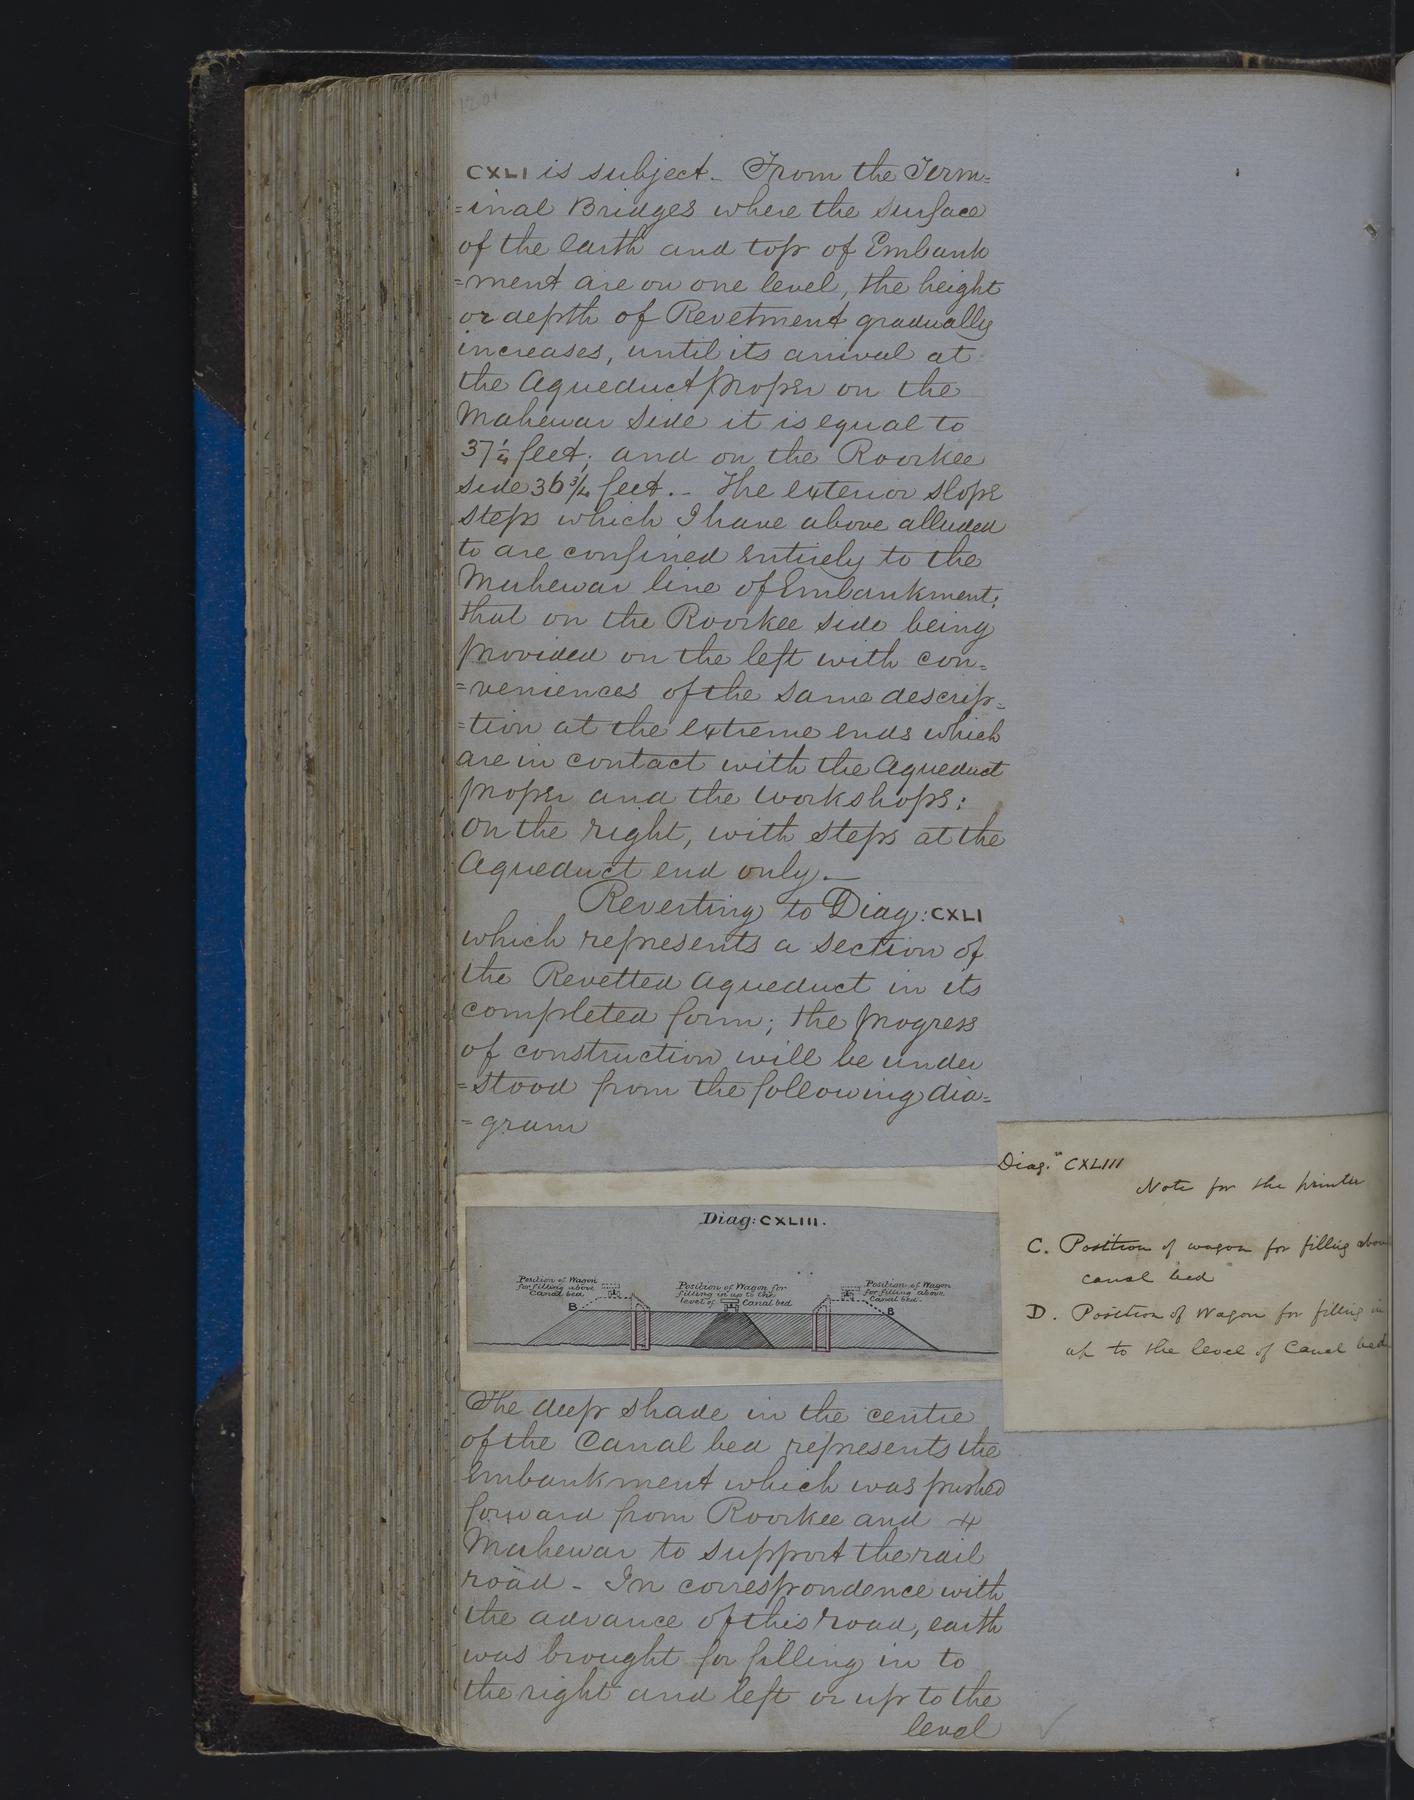 1201
CXLI is subject – From the Term=
=inal Bridges where the surface
of the earth and top of Embank
=ment are on one level, the height
or depth of Revetment gradually
increases, until its arrival at
the Aqueduct proper on the
Mahewar side it is equal to
37¼ feet; and on the Roorkee
side 36¾ feet. – The exterior slope
steps which I have above alluded
to are confined entirely to the
Mahewar line of Embankment;
that on the Roorkee side being
provided on the left with con=
=veniences of the same descrip=
=tion at the extreme ends which
are in contact with the Aqueduct
proper and the workshops:
on the right, with steps at the
Aqueduct end only. –
Reverting to Diag: CXLI
which represents a section of
the Revetted Aqueduct in its
completed form; the progress
of construction will be under
=stood from the following dia=
=gram
Diag: CXLIII.
Position of Wagon
for filling above
Canal bed
B
Position of Wagon for
filling in up to the
level of Canal bed
Position of Wagon
for filling above
Canal bed.
B
Diag.m CXLIII
Note for the printer
C. Position of wagon for filling above
canal bed
D. Position of Wagon for filling in
up to the level of Canal bed
The deep shade in the centre
of the Canal bed represents the
Embankment which was pushed
forward from Roorkee and
Mahewar to support the rail
road – In correspondence with
the advance of this road, earth
was brought for filling in to
the right and left or up to the
level